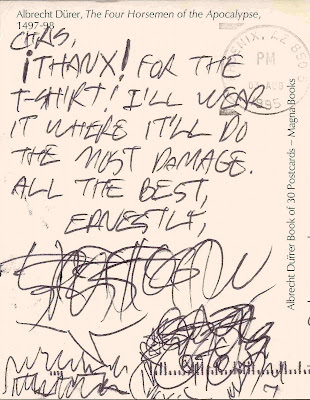 Albrecht Dürer, The Four Horsemen of the Apocalypse,
1497-98
CHRIS,
¡THANX! FOR THE
T-SHIRT! I'LL WEAR
IT WHERE IT'LL DO
THE MOST DAMAGE.
ALL THE BEST,
ERNESTLY,
ENIX, AZ 850
PM
1995
Albrecht Dürer Book of 30 Postcards – Magna Books